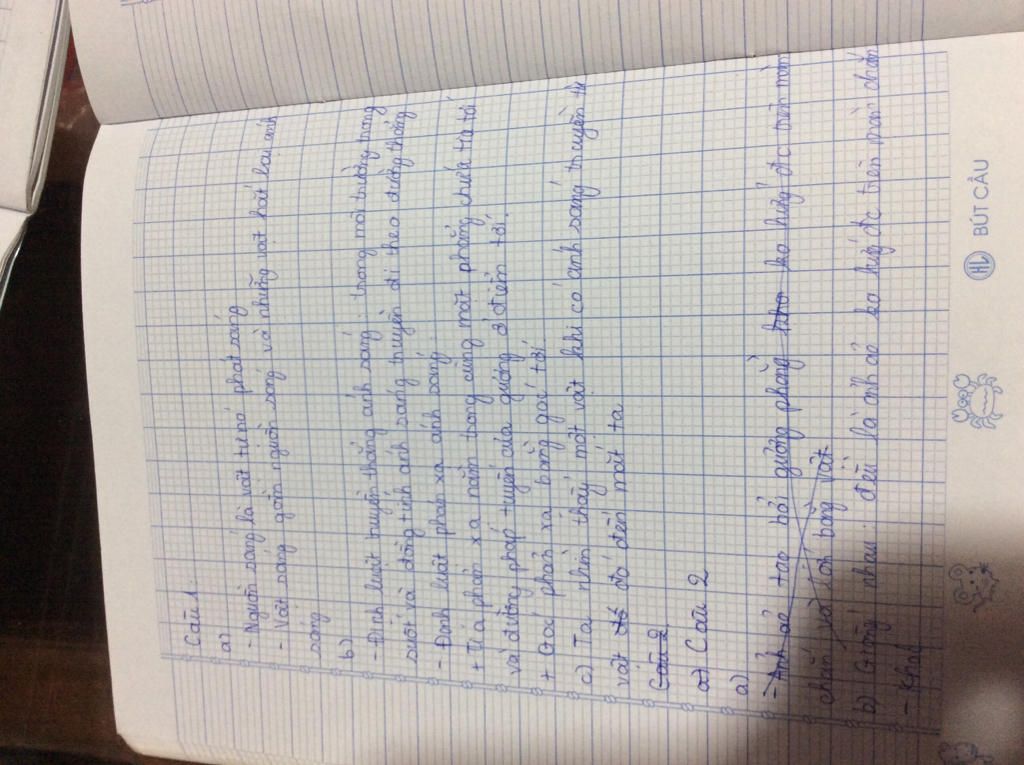 Câu 1.
a)
- Nguồn sáng là vật tự nó phát sáng
- Vật sáng gồm nguồn sáng và những vật hắt lại ánh
sáng
b)
- Định luật truyền thẳng ánh sáng: trong môi trường trong
suốt và đồng tính ánh sáng truyền đi theo đường thẳng
- Định luật phản xạ ánh sáng:
+ Tia phản xạ nằm trong cùng mặt phẳng chứa tia tới
và đường pháp tuyến của gương ở điểm tới.
+ Góc phản xạ bằng góc tới
c) Ta nhìn thấy một vật khi có ánh sáng truyền từ
vật đó đến mắt ta
Câu 2
a) Câu 2
a)
- Ảnh ảo tạo bởi gương phẳng ko hứng đc trên màn
chắn và lớn bằng vật
b) Giống nhau: đều là ảnh ảo ko hứng đc trên màn chắn
- Khác
HL BÚT CẦU